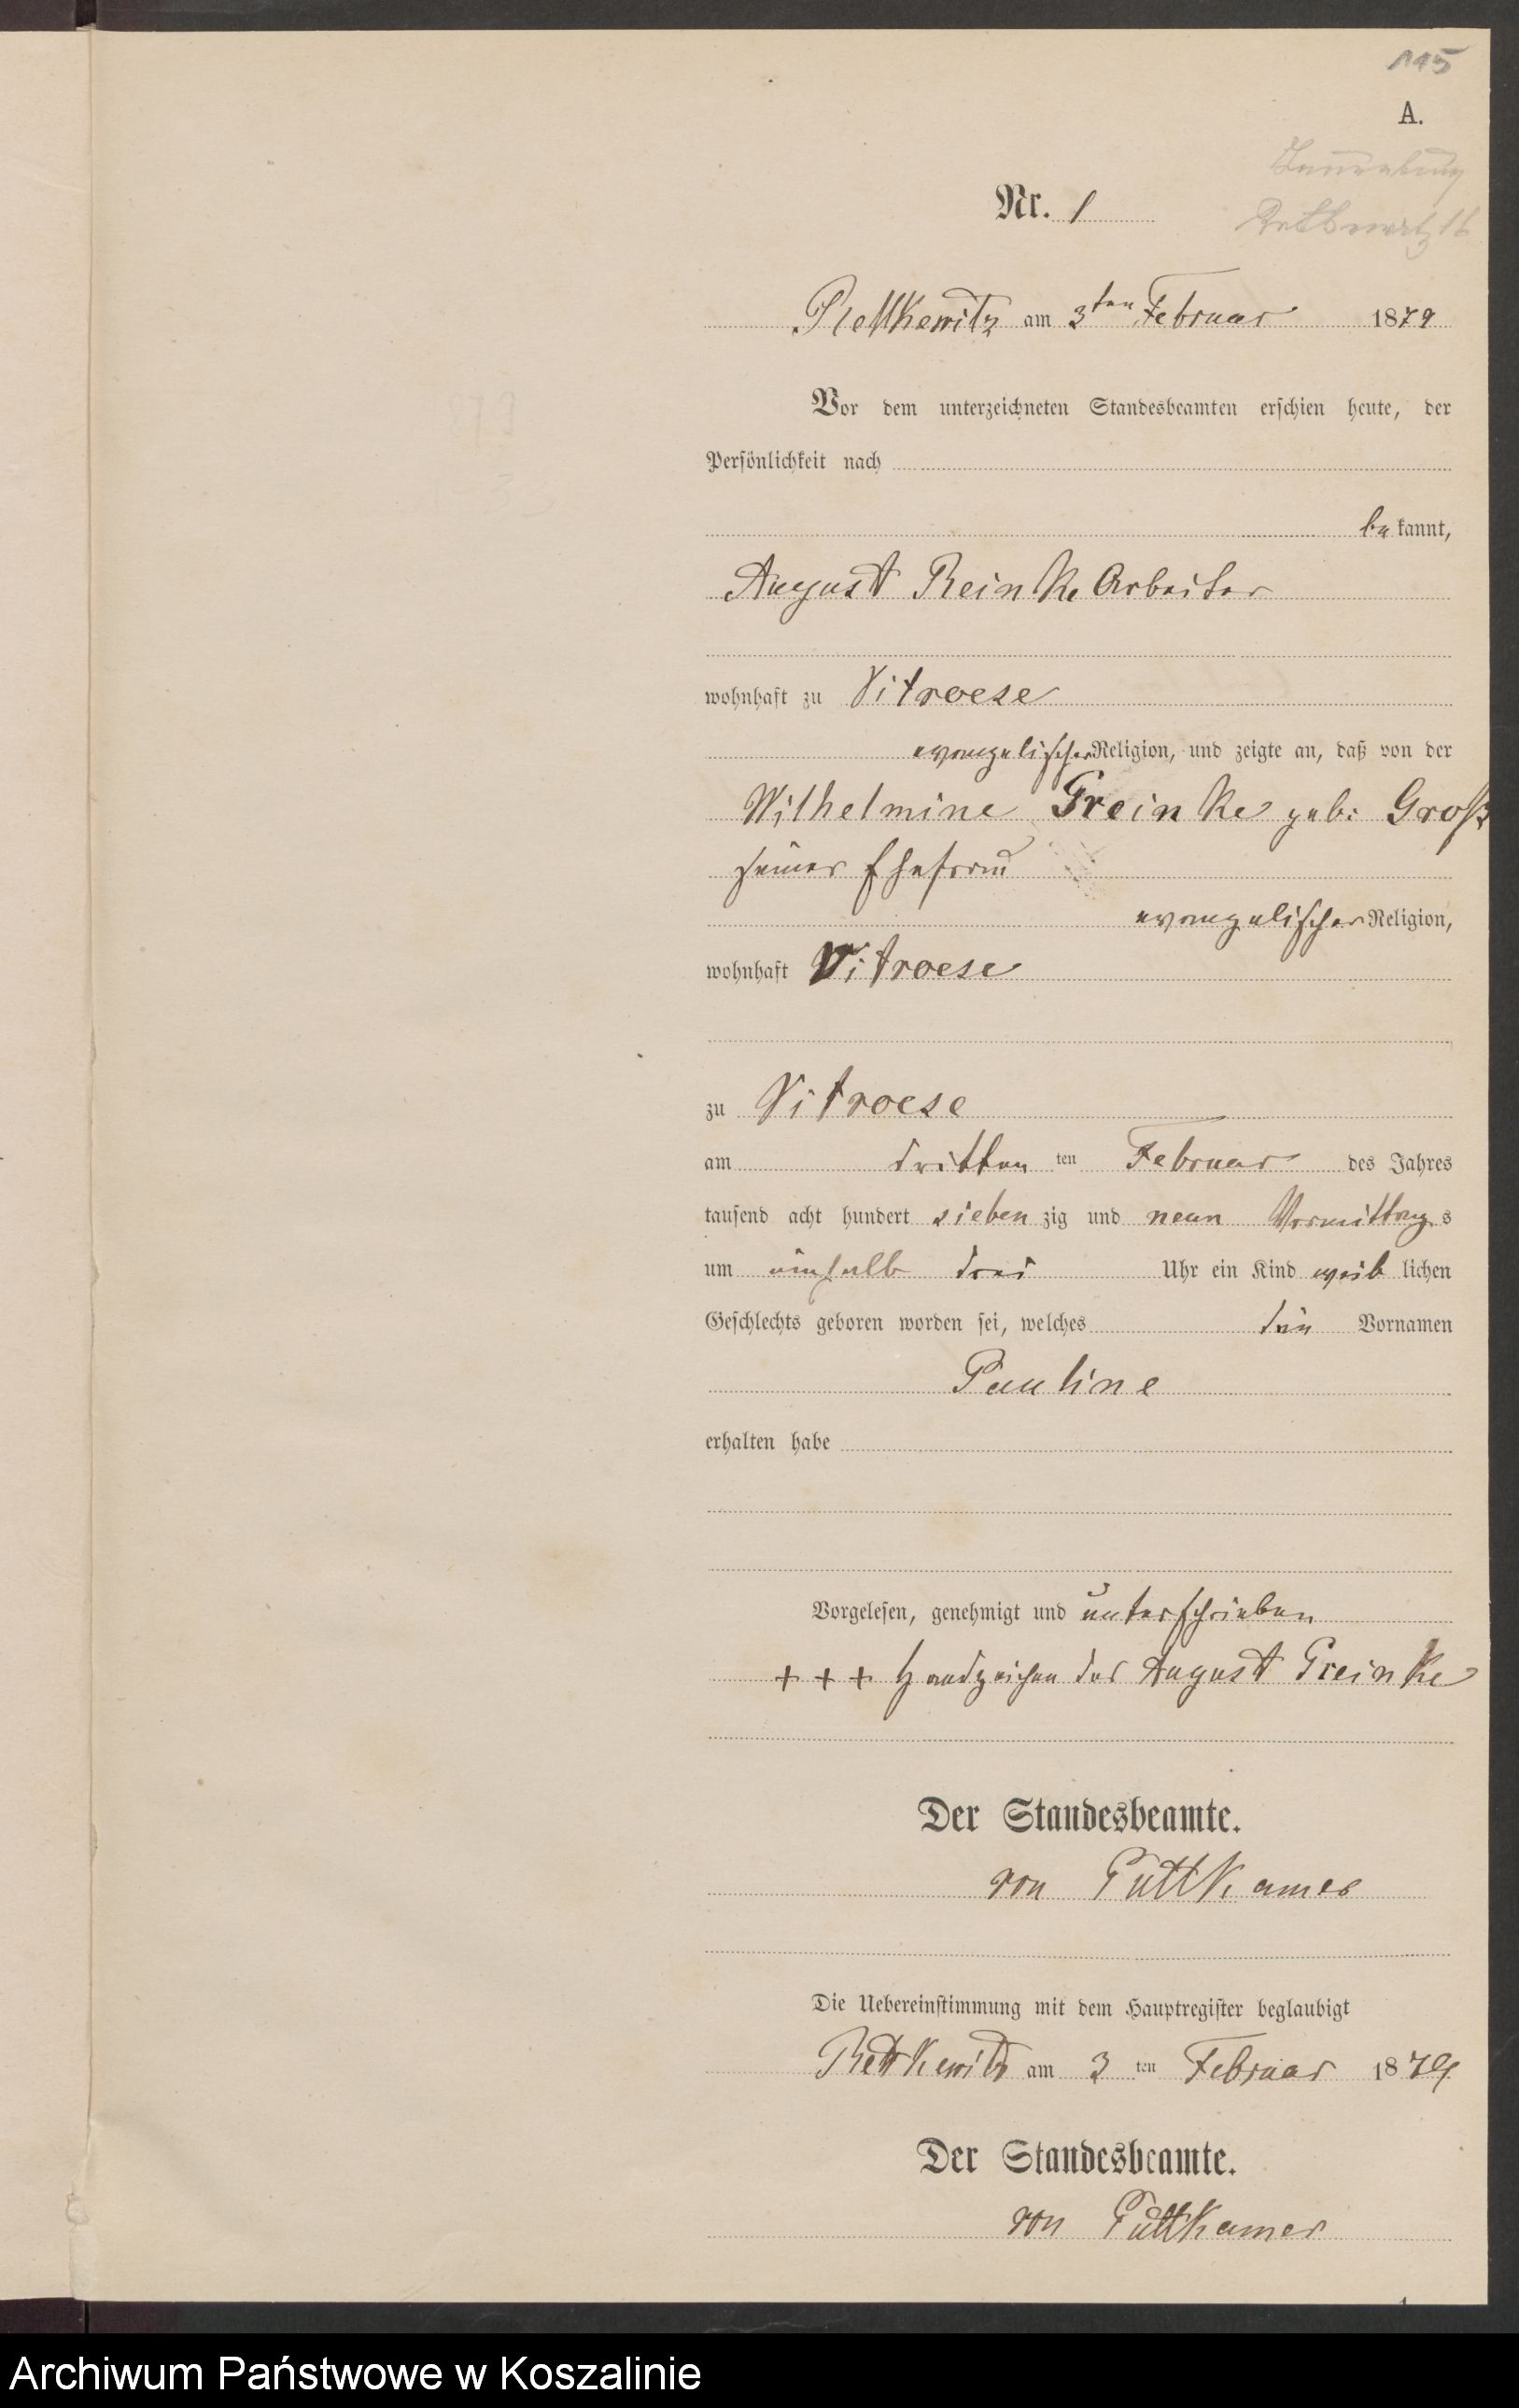 115
A.
Nr. 1
Rettkewitz am 3ten Februar 1879
Vor dem unterzeichneten Standesbeamten erschien heute, der
Persönlichkeit nach
bekannt,
August Reinke Arbeiter
wohnhaft zu Vitroese
evangelischer Religion, und zeigte an, daß von der
Wilhelmine Preinke geb: Groß
seiner Ehefrau
evangelischer Religion,
wohnhaft Vitroese
zu Vitroese
am dritten ten Februar des Jahres
tausend acht hundert siebenzig und neun Vormittags
um einhalb drei Uhr ein Kind weiblichen
Geschlechts geboren worden sei, welches den Vornamen
Pauline
erhalten habe
Vorgelesen, genehmigt und unterschrieben
+ + + Handzeichen des August Preinke
Der Standesbeamte.
von Puttkamer
Die Uebereinstimmung mit dem Hauptregister beglaubigt
Rettkewitz am 3 ten Februar 1879
Der Standesbeamte.
von Puttkamer
Archiwum Państwowe w Koszalinie